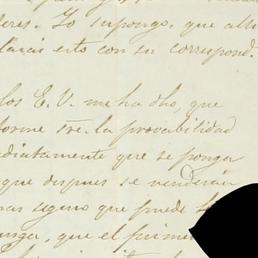 eres. Yo supongo, que all
larás esto con su correspond.
los E. V. me ha dho, que
forme sre. la provabilidad
ediatamente que se ponga
que despues se venderán
mas seguro que puede
nga, que el primer